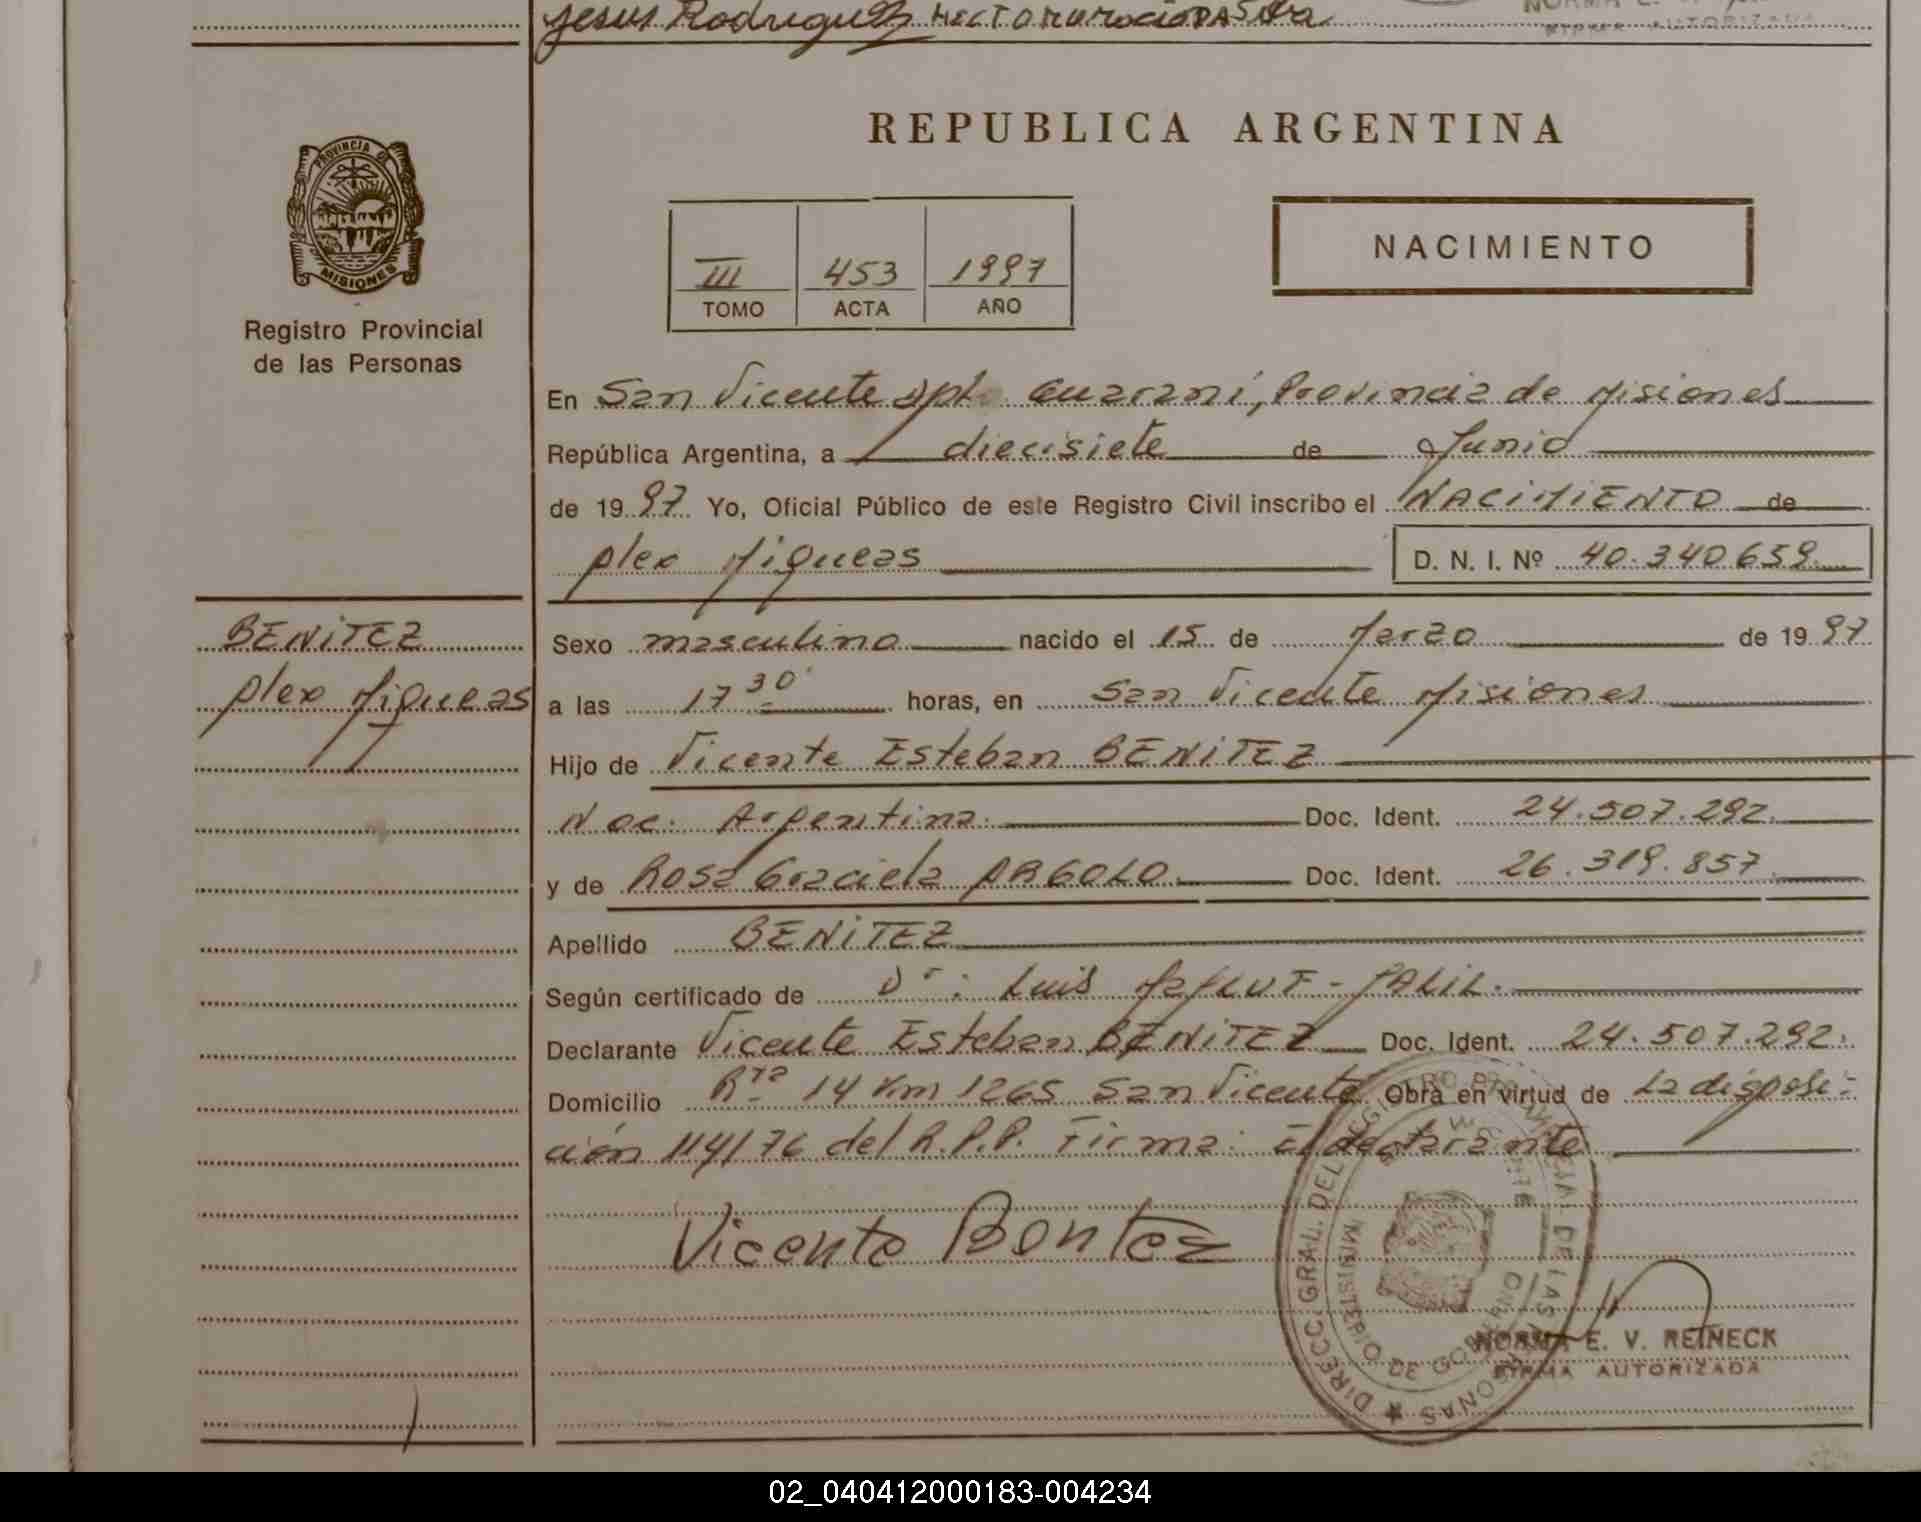 Jesus Rodriguez HECTOR HORACIO DA Silva
NORMA E.
FIRMA AUTORIZADA
PROVINCIA DE
MISIONES
Registro Provincial
de las Personas
REPUBLICA ARGENTINA
III 453 1997
TOMO ACTA AÑO
NACIMIENTO
En San Vicente Dpto Guaraní, Provincia de Misiones
República Argentina, a diecisiete de Junio
de 1997 Yo, Oficial Público de este Registro Civil inscribo el NACIMIENTO de
Alex Miqueas D. N. I. Nº 40.340.659
BENITEZ
Alex Miqueas
Sexo masculino nacido el 15 de Marzo de 1997
a las 17 30 horas, en San Vicente Misiones
Hijo de Vicente Esteban BENITEZ
Nac. Argentina. Doc. Ident. 24.507.292.
y de Rosa Graciela ARGOLO. Doc. Ident. 26.319.857
Apellido BENITEZ
Según certificado de Dr: Luis JALIL.
Declarante Vicente Esteban BENITEZ Doc. Ident. 24.507.292.
Domicilio Rta 14 Km 1265 San Vicente Obra en virtud de La disposi-
ción 114/76 del R.P.P. Firma: El declarante
Vicente Bentez
DIRECC. GRAL. DEL REGISTRO PROVINCIAL DE LAS PERSONAS
MINISTERIO DE GOBIERNO
NORMA E. V. REINECK
FIRMA AUTORIZADA
02_040412000183-004234